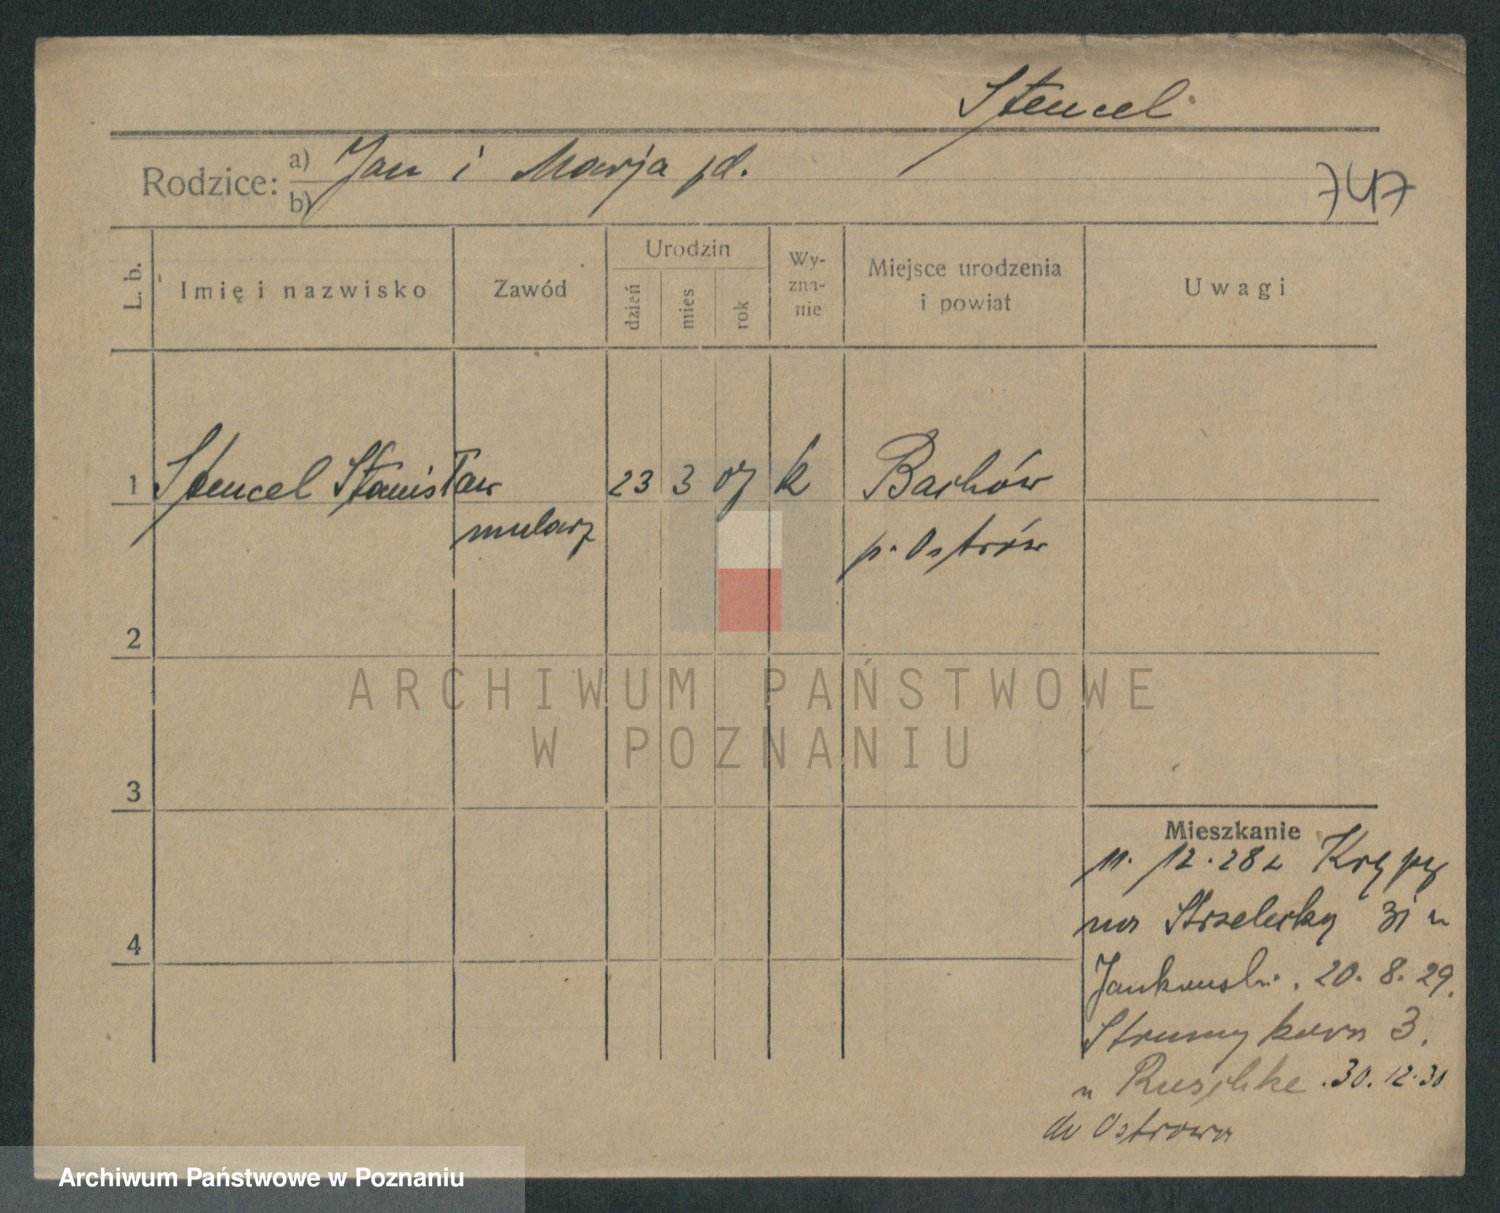 Stencel
Rodzice: a) Jan i Marja jd.
b)
747
L. b.
Imię i nazwisko
Zawód
Urodzin
dzień
mies
rok
Wy-
zna-
nie
Miejsce urodzenia
i powiat
Uwagi
1 Stencel Stanisław 23 3 07 k Bachów
mularz p. Ostrów
2
ARCHIWUM PAŃSTWOWE
W POZNANIU
3
Mieszkanie
11. 12. 28 z Krępy
na Strzelecką 31 u
Jankowski. 20. 8. 29.
Strumykowa 3.
u Ruschke. 30. 12. 30
do Ostrowa
4
Archiwum Państwowe w Poznaniu